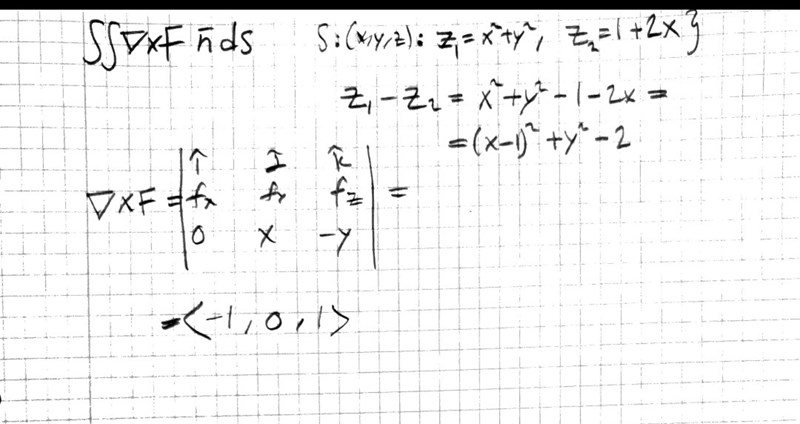 ∬∇×F n̄ dS   S:(x,y,z): z₁=x²+y², z₂=1+2x}
z₁-z₂ = x²+y²-1-2x =
=(x-1)²+y²-2
∇×F = | î  ĵ  k̂ |
| fx  fy  fz | =
| 0  x  -y |
=<-1, 0, 1>